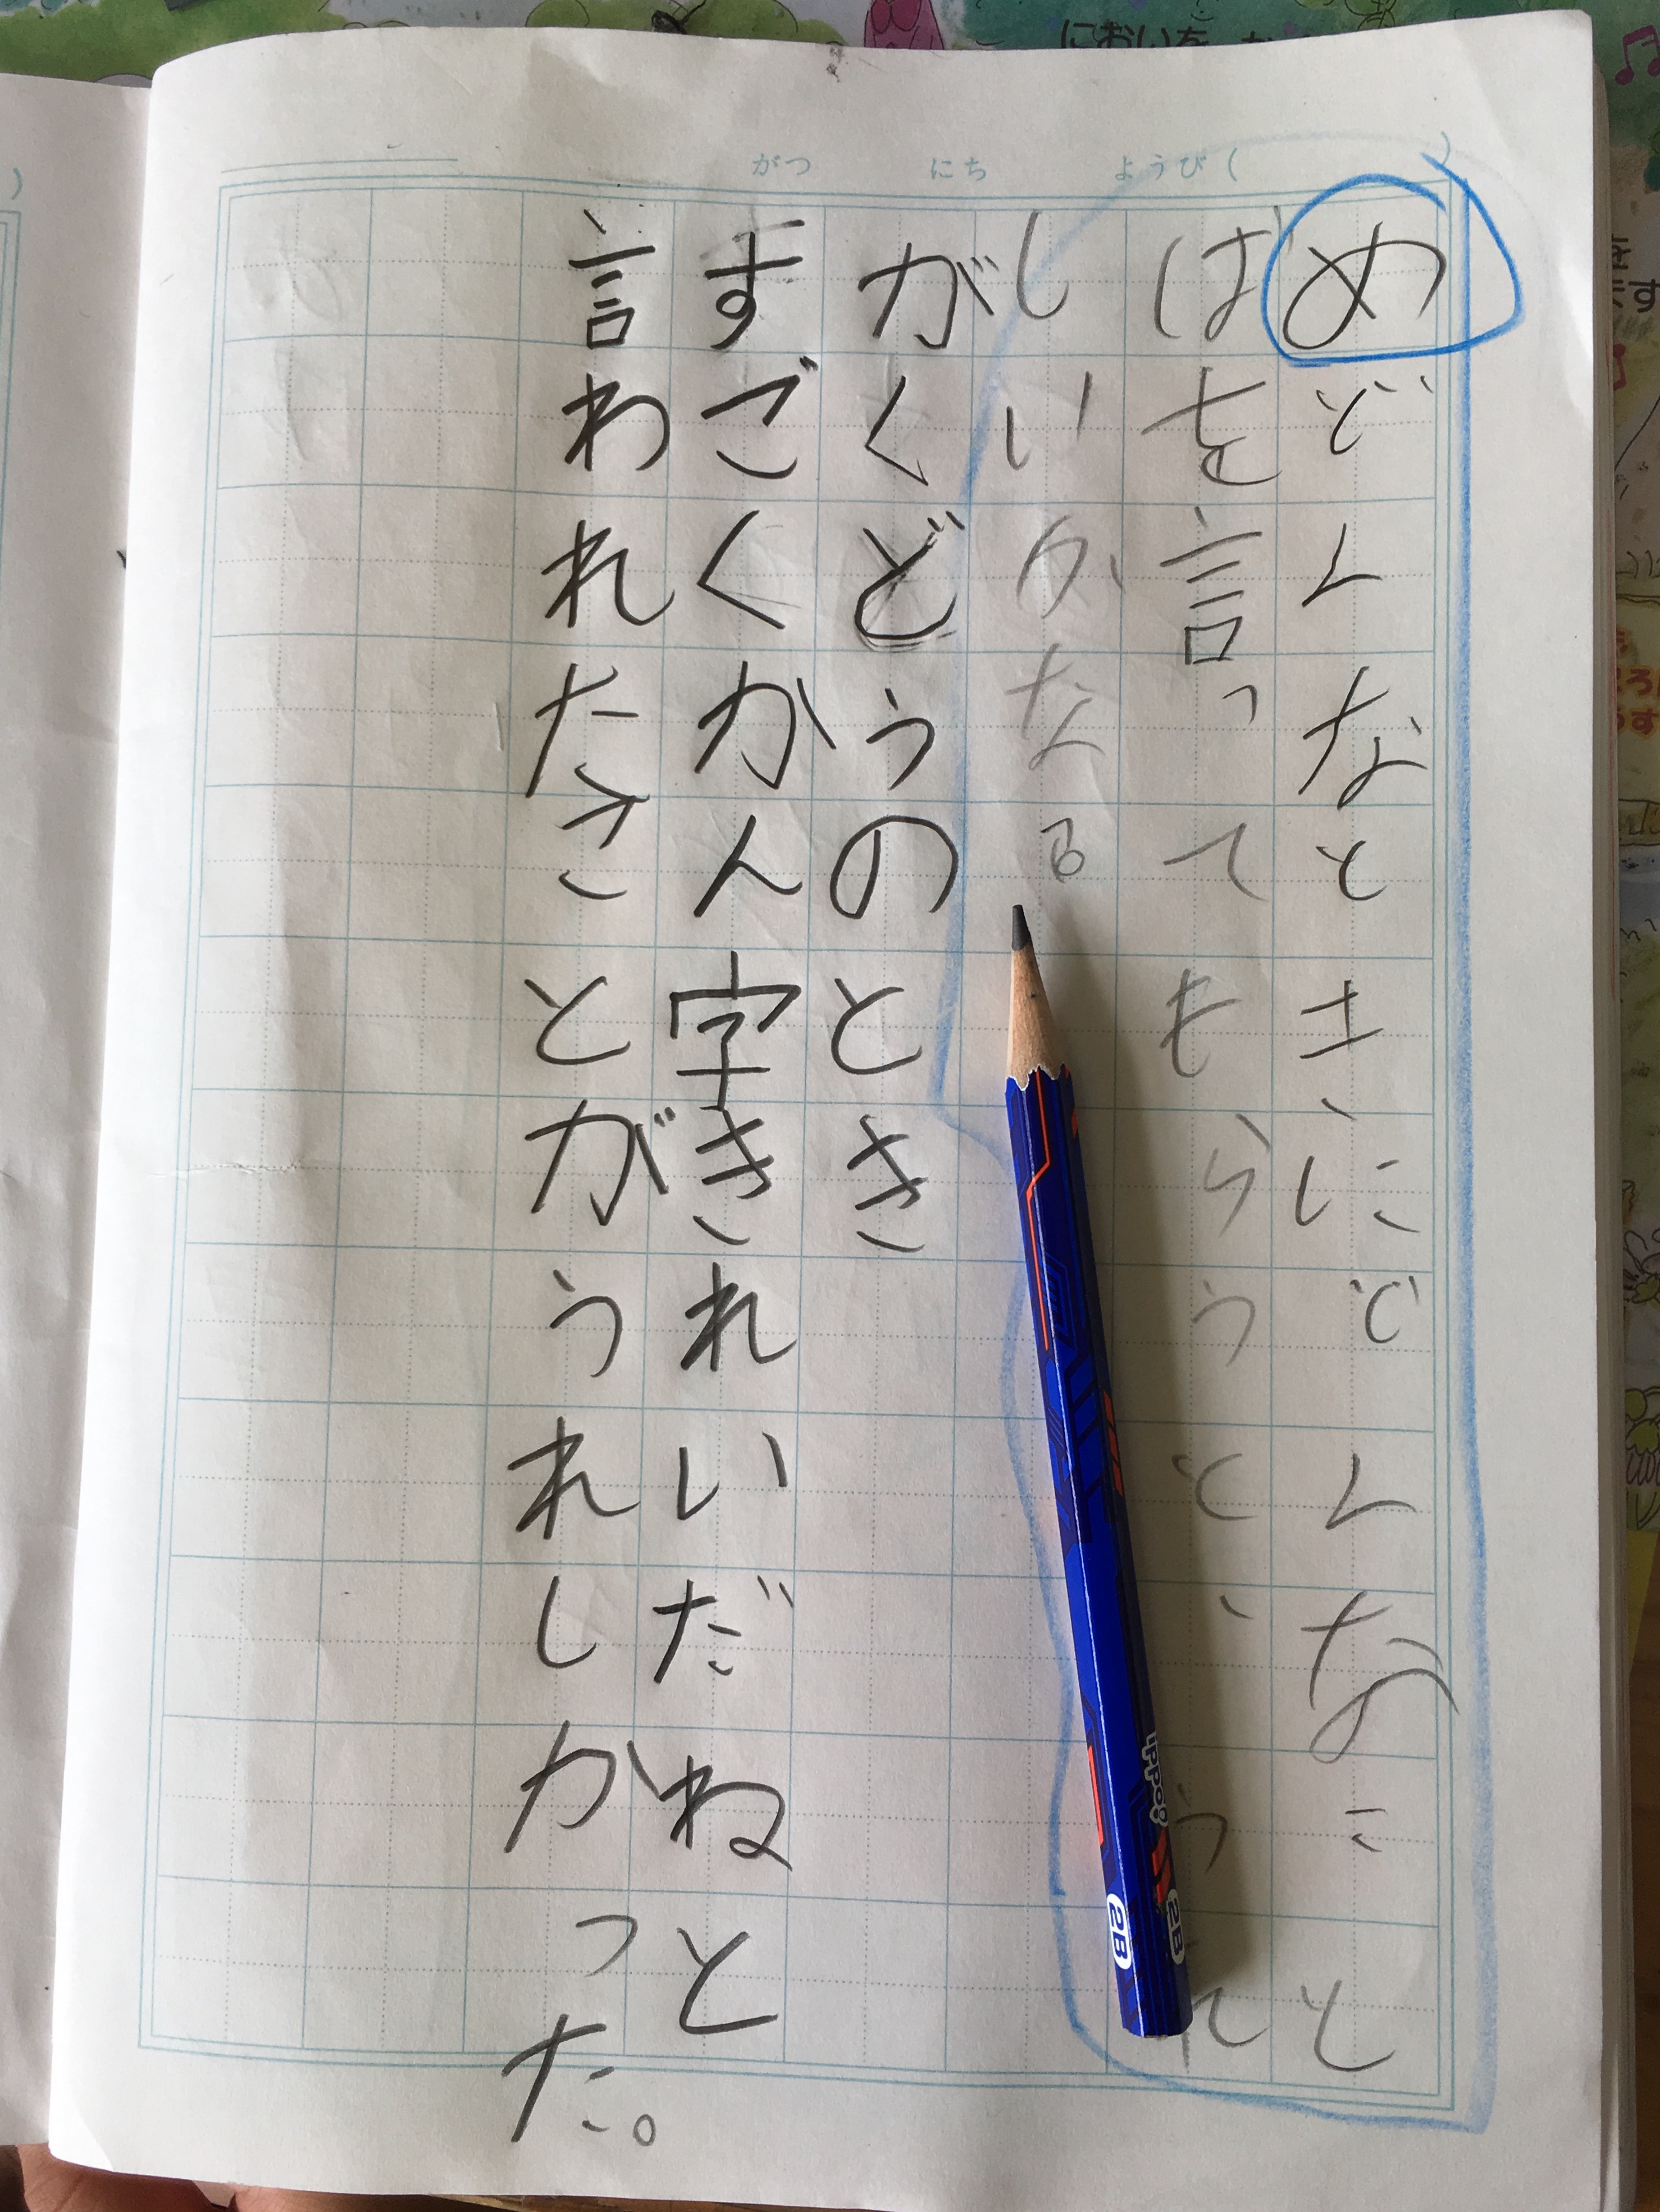 がつ にち ようび( )
めどんなときにどんなこと
ばを言ってもらうと、うれ
しいかなる
がくどうのとき
すごくかん字きれいだねと
言われたことがうれしかった。
ippo!
2B
2B
においを